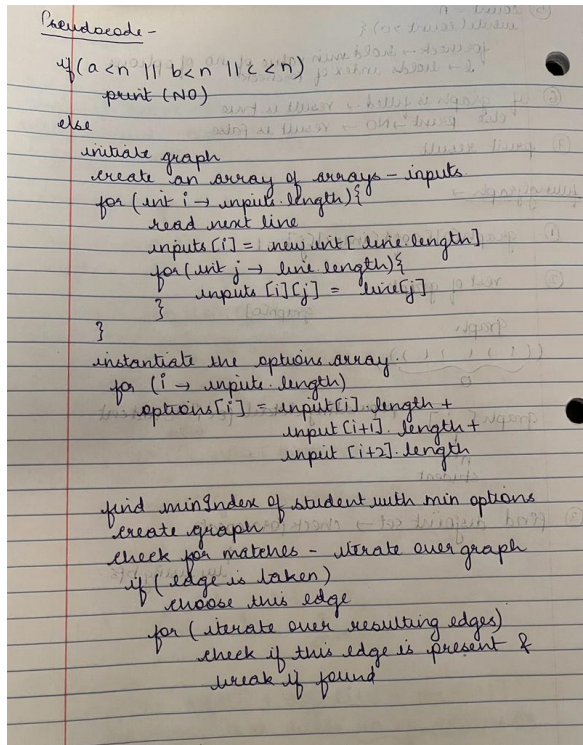 Pseudocode -
if (a<n || b<n || c<n)
print (NO)
else
initiate graph
create an array of arrays - inputs
for (int i → inputs.length){
read next line
inputs [i] = new int[ line.length]
for (int j → line.length){
inputs [i][j] = line[j]
}
}
instantiate the options array.
for (i → inputs.length)
options[i] = input[i].length +
input [i+1].length +
input [i+2].length
find minIndex of student with min options
create graph
check for matches - iterate over graph
if (edge is taken)
choose this edge
for (iterate over resulting edges)
check if this edge is present &
break if found